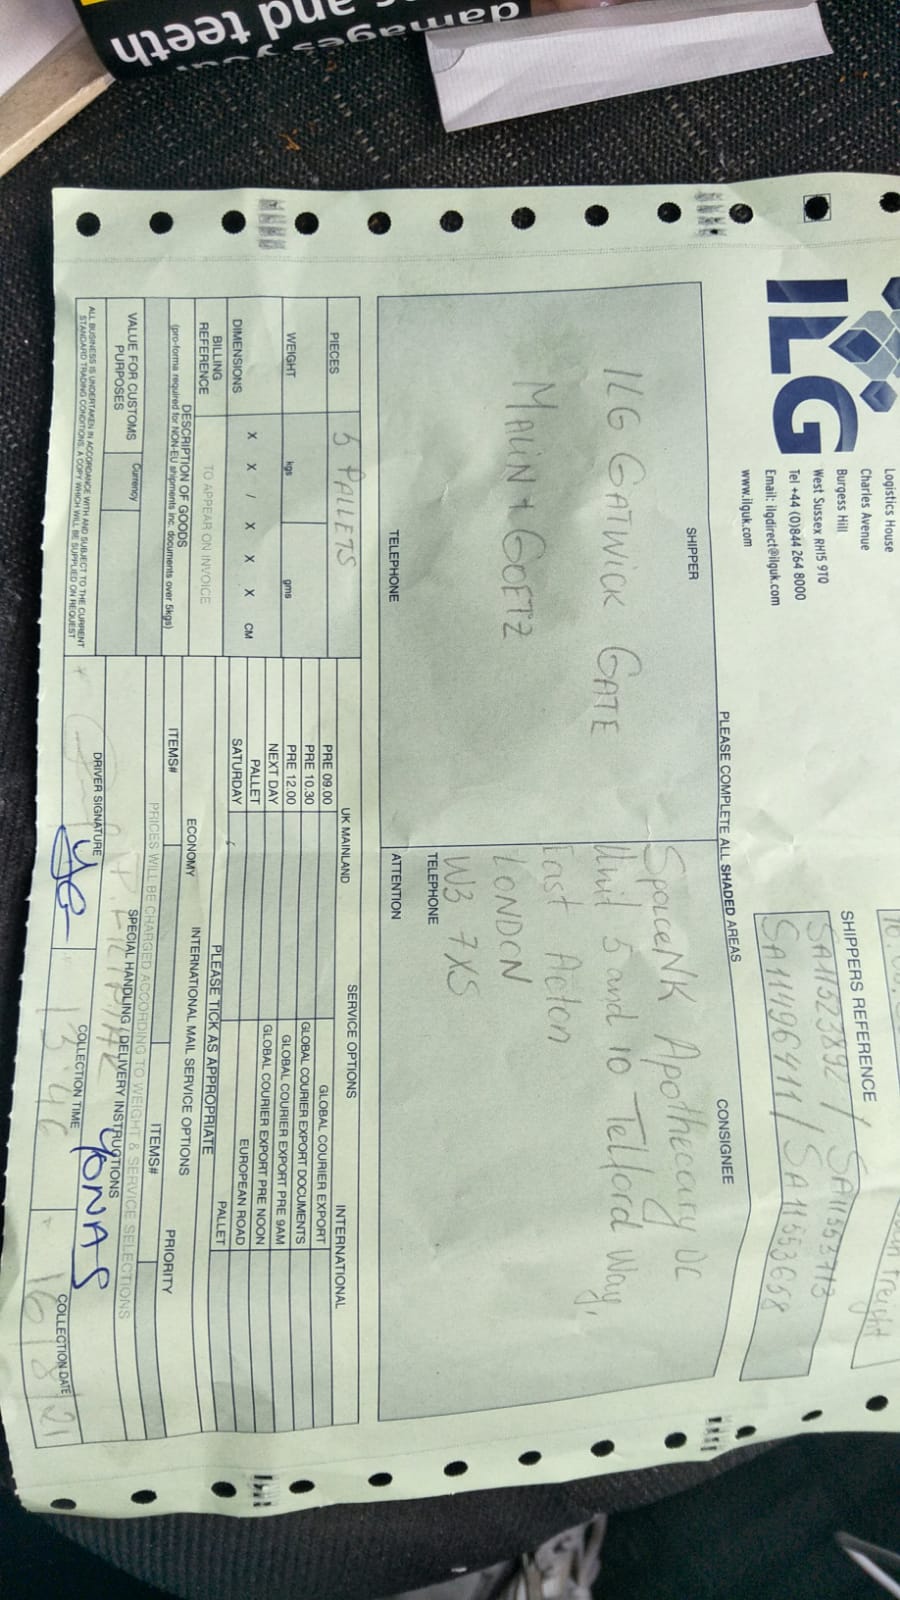 damages your
and teeth
ILG
Logistics House
Charles Avenue
Burgess Hill
West Sussex RH15 9TO
Tel +44 (0)844 264 8000
Email: ilgdirect@ilguk.com
www.ilguk.com
SHIPPERS REFERENCE
SA11523892 / SA11553713
SA11496411 / SA11553658
PLEASE COMPLETE ALL SHADED AREAS
SHIPPER
CONSIGNEE
ILG GATWICK GATE
MALIN + GOETZ
TELEPHONE
SpaceNK Apothecary DC
Unit 5 and 10 Telford Way,
East Acton
LONDON
W3 7XS
TELEPHONE
ATTENTION
PIECES
5 PALLETS
WEIGHT
kgs
gms
DIMENSIONS
X X / X X X CM
BILLING REFERENCE
TO APPEAR ON INVOICE
DESCRIPTION OF GOODS
(pro-forma required for NON-EU shipments inc. documents over 5kgs)
VALUE FOR CUSTOMS PURPOSES
Currency
ALL BUSINESS IS UNDERTAKEN IN ACCORDANCE WITH AND SUBJECT TO THE CURRENT
STANDARD TRADING CONDITIONS, A COPY WHICH WILL BE SUPPLIED ON REQUEST
SERVICE OPTIONS
UK MAINLAND
INTERNATIONAL
PRE 09.00
GLOBAL COURIER EXPORT
PRE 10.30
GLOBAL COURIER EXPORT DOCUMENTS
PRE 12.00
GLOBAL COURIER EXPORT PRE 9AM
NEXT DAY
GLOBAL COURIER EXPORT PRE NOON
PALLET
EUROPEAN ROAD
SATURDAY
PALLET
PLEASE TICK AS APPROPRIATE
INTERNATIONAL MAIL SERVICE OPTIONS
ECONOMY
PRIORITY
ITEMS#
ITEMS#
PRICES WILL BE CHARGED ACCORDING TO WEIGHT & SERVICE SELECTIONS
SPECIAL HANDLING / DELIVERY INSTRUCTIONS
YONAS
DRIVER SIGNATURE
COLLECTION TIME
13:46
COLLECTION DATE
16/8/21